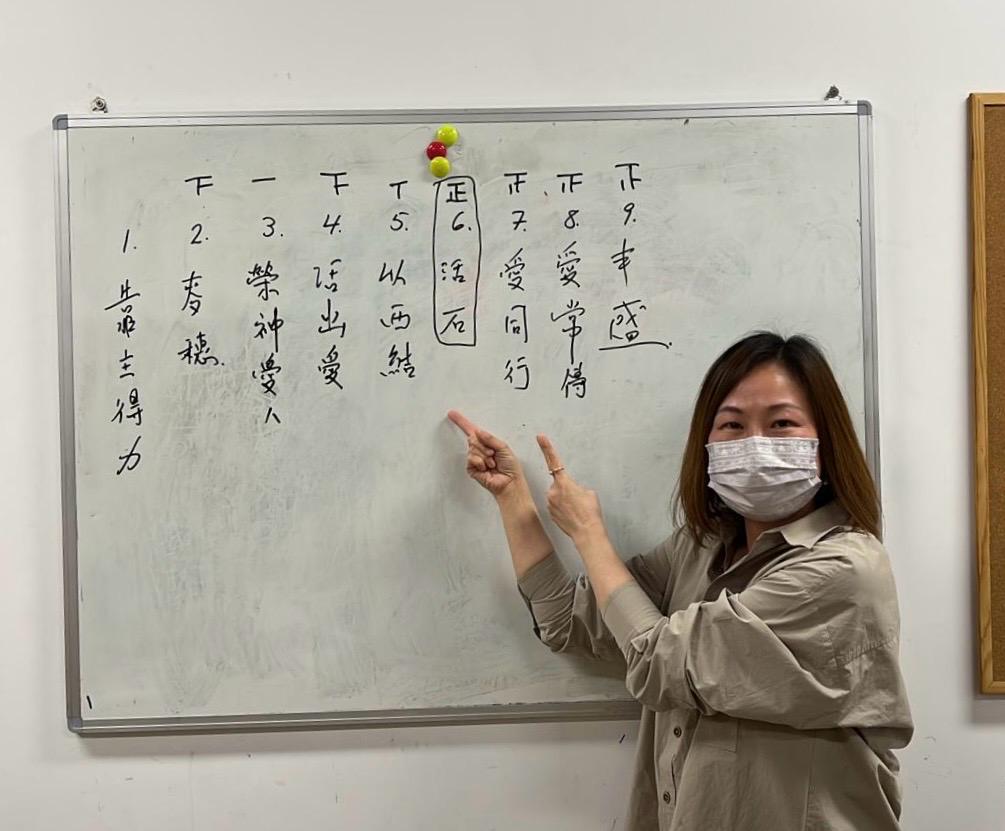 1. 靠主得力
下 2. 麥穗.
一 3. 榮神愛人
下 4. 活出愛
丅 5. 以西結
正 6. 活石
正 7. 愛同行
正 8. 愛常傳
正 9. 丰盛.